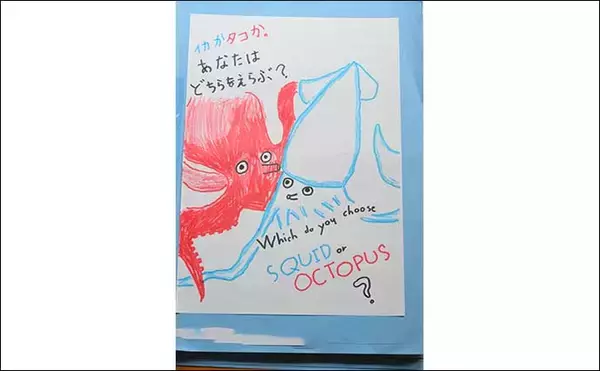 イカかタコか。
あなたは
どちらをえらぶ?
Which do you choose
SQUID or
OCTOPUS
?